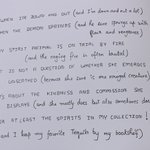 WHEN I'M DOWN AND OUT (and I'm down and out a lot)
WHEN THE DEMON SPRINGS (and he sure springs up with
flash and vengeance)
MY SPIRIT ANIMAL IS ON TRIAL BY FIRE
(and the raging fire is often brutal)
IT IS NOT A QUESTION OF WHETHER SHE EMERGES
UNSCATHED (because she sure is one rugged creature)
IT'S ABOUT THE KINDNESS AND COMPASSION SHE
DISPLAYS (and she mostly does but also sometimes does
OR AT LEAST THE SPIRITS IN MY COLLECTION!
(and I keep my favorite Tequila by my bookshelf)